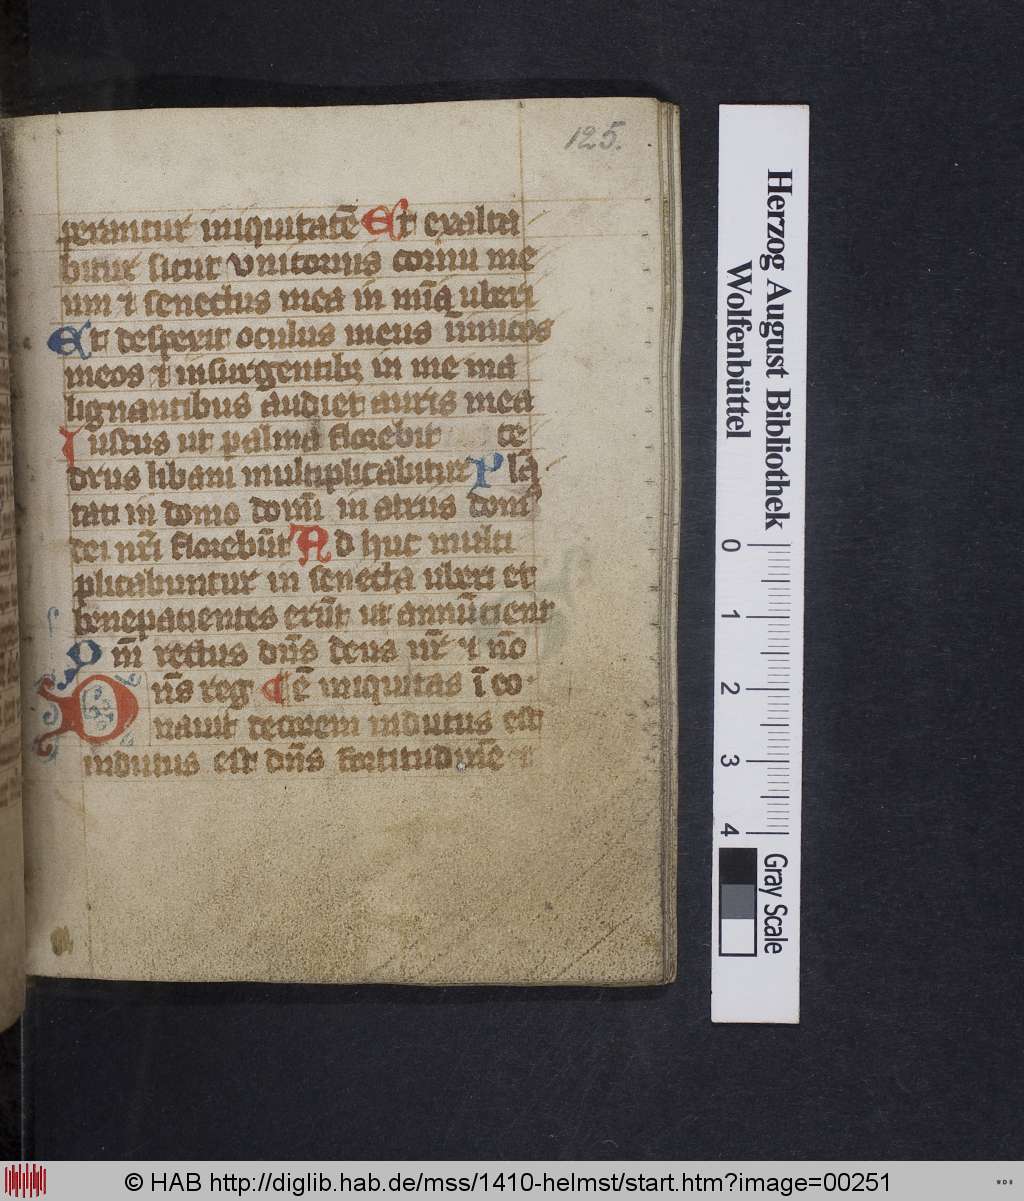 125.
perantur iniquitatē Et exalta
bitur sicut vnicornis cornu me
um ⁊ senectus mea in mīa uberi
Et despexit oculus meus inimicos
meos ⁊ insurgentibꝫ in me ma
lignantibus audiet auris mea
Iustus ut palma florebit ce
drus libani multiplicabitur Plā
tati in domo domī in atriis domꝰ
dei nr̄i florebūt Ad huc multi
plicabuntur in senecta uberi et
benepatientes erūt ut annūcient
Qm̄ rectus dn̄s deus nr̄ ⁊ nō
Dn̄s reg ē iniquitas ī eo·
nauit decorem indutus est
indutus est dn̄s fortitudinē ⁊
Herzog August Bibliothek
Wolfenbüttel
0 1 2 3 4
Gray Scale
© HAB http://diglib.hab.de/mss/1410-helmst/start.htm?image=00251